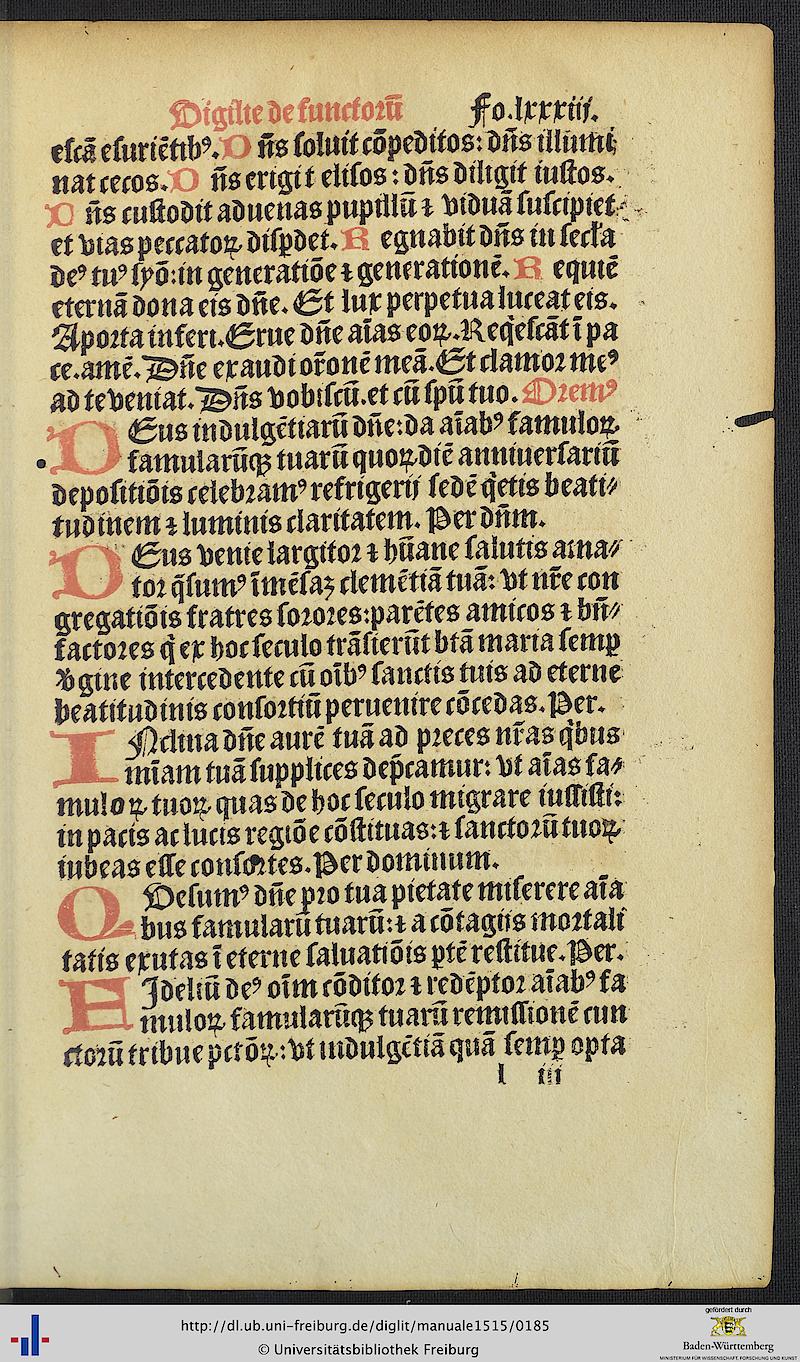 Vigilie defunctoꝝ̄ Fo.lxxxiij.
eſcā eſuriētibꝰ. D ñs ſoluit cōpeditos: dñs illumi
nat cecos. D ñs erigit eliſos: dñs diligit iuſtos.
D ñs cuſtodit aduenas pupillū ⁊ viduā ſuſcipiet:
et vias peccatoꝝ diſꝑdet. R egnabit dñs in ſecła
deꝰ tuꝰ ſyō: in generatiōe ⁊ generationē. R equiē
eternā dona eis dñe. Et lux perpetua luceat eis.
A porta inferi. Erue dñe aīas eoꝝ. Reqeſcāt ī pa
ce. amē. Dñe exaudi or̄onē meā. Et clamor meꝰ
ad te veniat. Dñs vobiſcū. et cū ſpū tuo. Oremꝰ
DEus indulgētiarū dñe: da aīabꝰ famuloꝝ
famularūqꝫ tuarū quoꝝ diē anniuerſariū
depoſitiōis celebramꝰ refrigerij ſedē q̄etis beati⸗
tudinem ⁊ luminis claritatem. Per dñm.
DEus venie largitor ⁊ hūane ſalutis ama⸗
tor q̄ſumꝰ īmēſaꝫ clemētiā tuā: vt nr̄e con
gregatiōis fratres ſorores: parētes amicos ⁊ bn̄⸗
factores q̄ ex hoc ſeculo trāſierūt btā maria ſemꝑ
v̓gine intercedente cū oībꝰ ſanctis tuis ad eterne
beatitudinis conſortiū peruenire cōcedas. Per.
INclina dñe aurē tuā ad preces nr̄as qͥbus
mīam tuā ſupplices dep̄camur: vt aīas fa⸗
muloꝝ tuoꝝ quas de hoc ſeculo migrare iuſſiſti:
in pacis ac lucis regiōe cōſtituas: ⁊ ſanctorū tuoꝝ
iubeas eſſe conſortes. Per dominum.
QVeſumꝰ dñe pro tua pietate miſerere aīa
bus famularū tuarū: ⁊ a cōtagiis mortali
tatis exutas ī eterne ſaluatiōis ꝑtē reſtitue. Per.
FIdeliū deꝰ oīm cōditor ⁊ redēptor aīabꝰ fa
muloꝝ famularūqꝫ tuarū remiſſionē cun
ctorū tribue pctōꝝ: vt indulgētiā quā ſemꝑ opta
l iii
http://dl.ub.uni-freiburg.de/diglit/manuale1515/0185
© Universitätsbibliothek Freiburg
gefördert durch
Baden-Württemberg
MINISTERIUM FÜR WISSENSCHAFT, FORSCHUNG UND KUNST